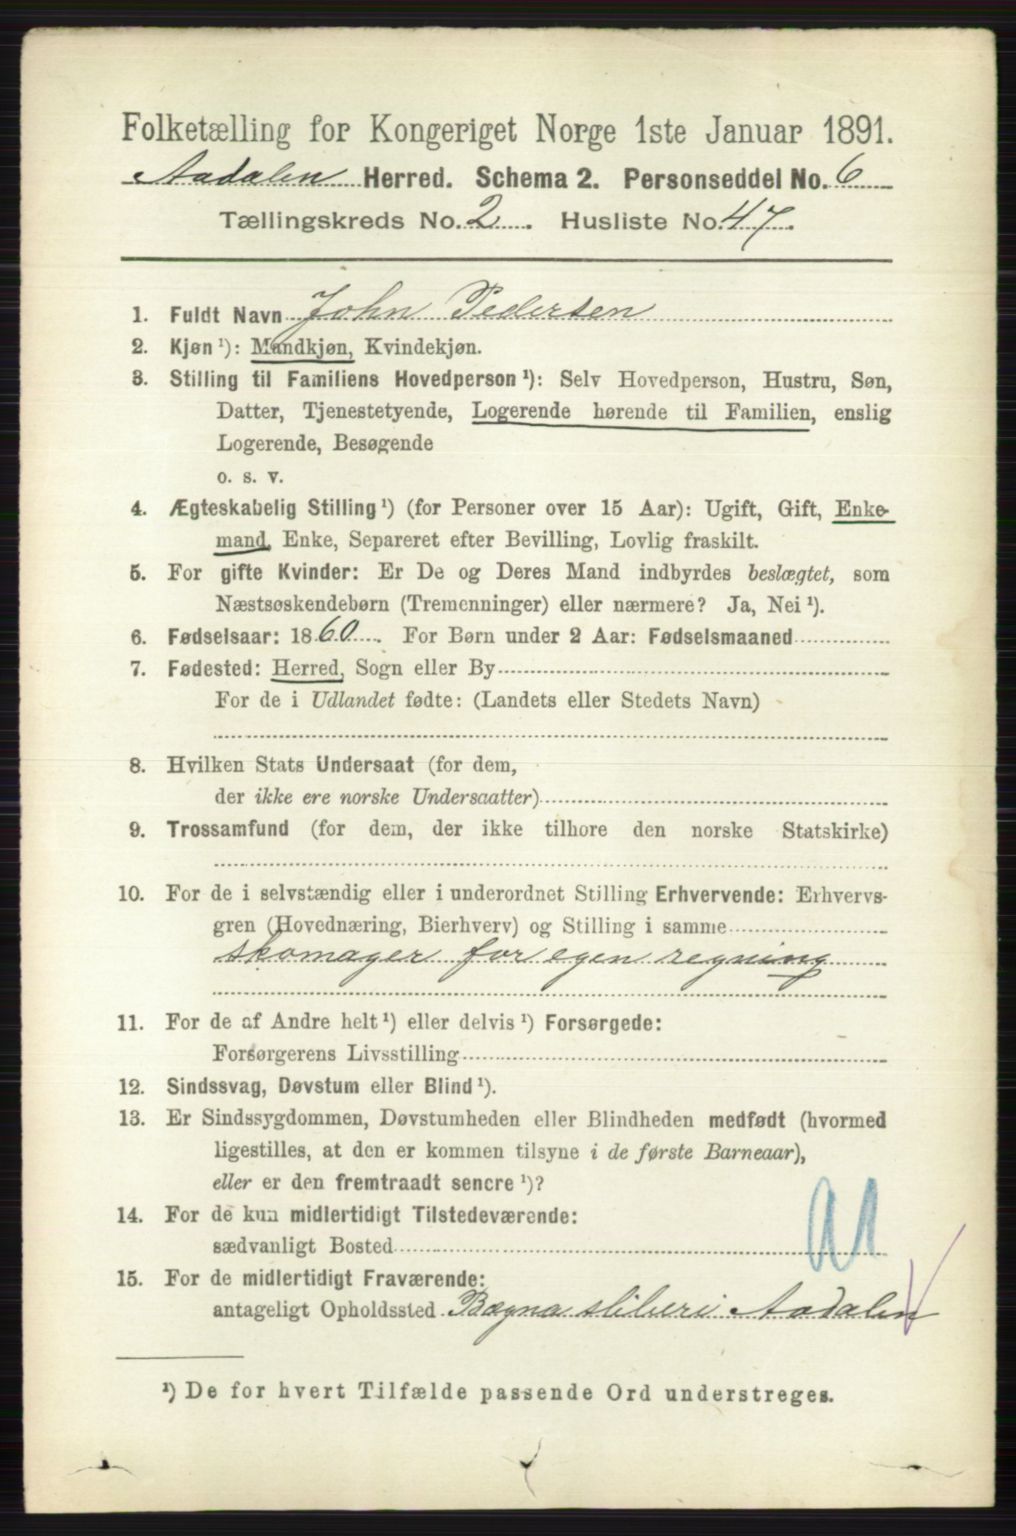 Folketælling for Kongeriget Norge 1ste Januar 1891.
Aadalen Herred. Schema 2. Personseddel No. 6
Tællingskreds No. 2. Husliste No. 47.
1. Fuldt Navn John Pedersen
2. Kjøn ¹): Mandkjøn, Kvindekjøn.
3. Stilling til Familiens Hovedperson ¹): Selv Hovedperson, Hustru, Søn,
Datter, Tjenestetyende, Logerende hørende til Familien, enslig
Logerende, Besøgende
o. s. v.
4. Ægteskabelig Stilling ¹) (for Personer over 15 Aar): Ugift, Gift, Enke-
mand, Enke, Separeret efter Bevilling, Lovlig fraskilt.
5. For gifte Kvinder: Er De og Deres Mand indbyrdes beslægtet, som
Næstsøskendebørn (Tremenninger) eller nærmere? Ja, Nei ¹).
6. Fødselsaar: 1860. For Børn under 2 Aar: Fødselsmaaned
7. Fødested: Herred, Sogn eller By
For de i Udlandet fødte: (Landets eller Stedets Navn)
8. Hvilken Stats Undersaat (for dem,
der ikke ere norske Undersaatter)
9. Trossamfund (for dem, der ikke tilhøre den norske Statskirke)
10. For de i selvstændig eller i underordnet Stilling Erhvervende: Erhvervs-
gren (Hovednæring, Bierhverv) og Stilling i samme
skomager for egen regning
11. For de af Andre helt ¹) eller delvis ¹) Forsørgede:
Forsørgerens Livsstilling
12. Sindssvag, Døvstum eller Blind ¹).
13. Er Sindssygdommen, Døvstumheden eller Blindheden medfødt (hvormed
ligestilles, at den er kommen tilsyne i de første Barneaar),
eller er den fremtraadt senere ¹)?
14. For de kun midlertidigt Tilstedeværende:
sædvanligt Bosted
15. For de midlertidigt Fraværende:
antageligt Opholdssted Bægna sliberi Aadalen
¹) De for hvert Tilfælde passende Ord understreges.